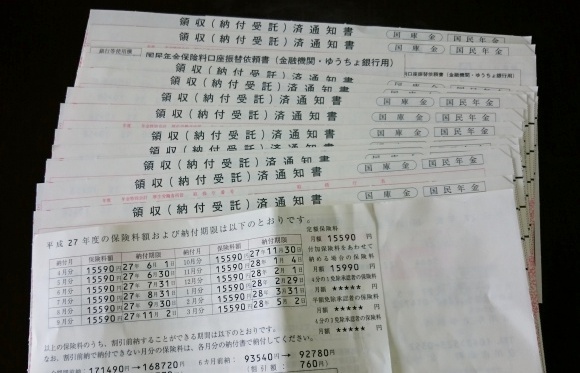 領収(納付受託)済通知書
領収(納付受託)済通知書 国庫金 国民年金
国庫金 国民年金
国民年金保険料口座振替依頼書(金融機関・ゆうちょ銀行用)
領収(納付受託)済通知書 口座振替依頼書(金融機関・ゆうちょ銀行用)
領収(納付受託)済通知書
領収(納付受託)済通知書 国庫金 国民年金
領収(納付受託)済通知書 国庫金 国民年金
領収(納付受託)済通知書 国庫金 国民年金
領収(納付受託)済通知書 国庫金 国民年金
領収(納付受託)済通知書 国庫金 国民年金
領収(納付受託)済通知書 国庫金 国民年金
平成27年度の保険料額および納付期限は以下のとおりです。
納付月 保険料額 納付期限 納付月 保険料額 納付期限
4月分 15590円 27年 6月 1日 10月分 15590円 27年11月30日
5月分 15590円 27年 6月30日 11月分 15590円 28年 1月 4日
6月分 15590円 27年 7月31日 12月分 15590円 28年 2月 1日
7月分 15590円 27年 8月31日 1月分 15590円 28年 2月29日
8月分 15590円 27年 9月30日 2月分 15590円 28年 3月31日
9月分 15590円 27年11月 2日 3月分 15590円 28年 5月 2日
定額保険料
月額 15590 円
付加保険料をあわせて
納める場合の保険料
月額 15990 円
4分の3免除承認者の保険料
月額 ***** 円
半額免除承認者の保険料
月額 ***** 円
4分の1免除承認者の保険料
月額 ***** 円
以上の保険料のうち、割引前納することができる期間は以下のとおりです。
なお、割引前納で納付できない月分の保険料は、各月分の納付書で納付してください。
171490円→168720円 6カ月前納: 93540円→ 92780円
(割引額: 760円)